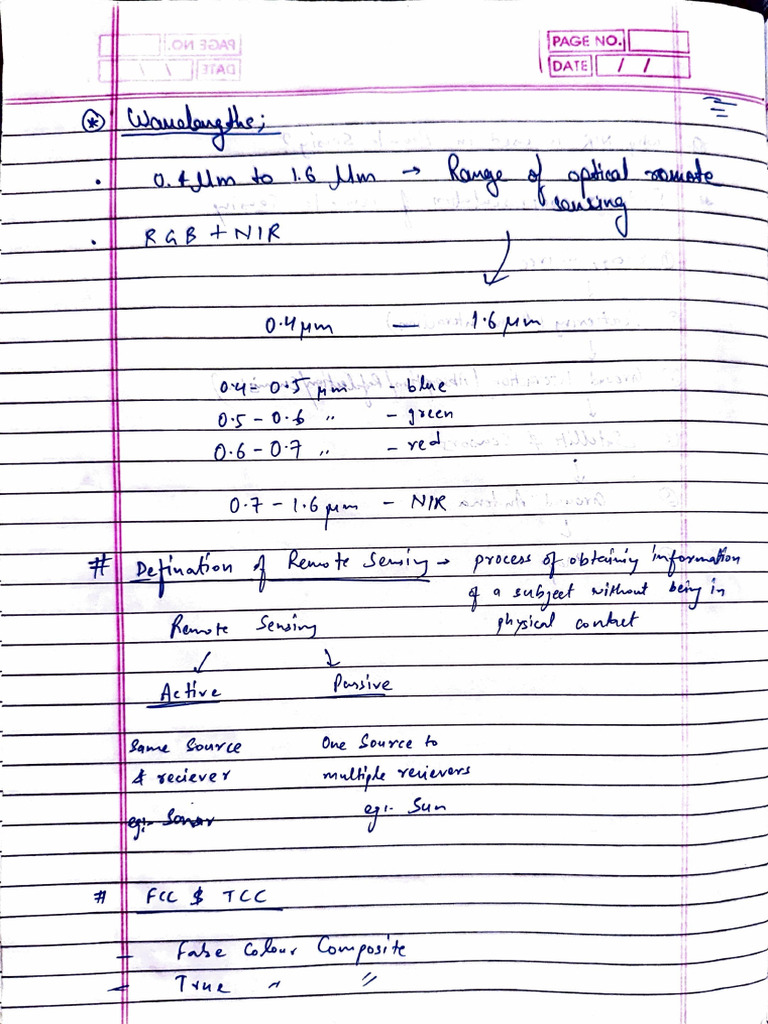 PAGE NO.
DATE / /
* Wavelengths;
• 0.4 μm to 1.6 μm → Range of optical remote
sensing
• RGB + NIR
0.4 μm — 1.6 μm
0.4 - 0.5 μm - blue
0.5 - 0.6 〃 - green
0.6 - 0.7 〃 - red
0.7 - 1.6 μm - NIR
# Defination of Remote Sensing → process of obtaining information
of a subject without being in
physical contact
Remote Sensing
Active Passive
Same source One source to
& reciever multiple recievers
eg:- Sonar eg:- Sun
# FCC & TCC
- False Colour Composite
- True 〃 〃